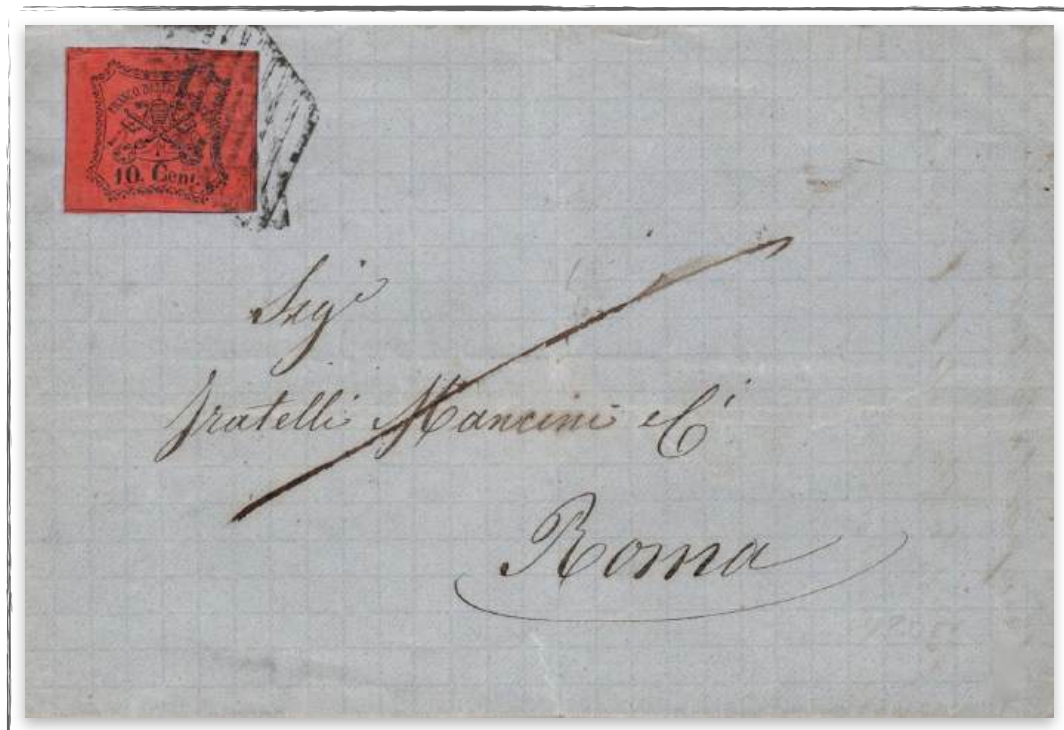 FRANCO BOLLO
10. Cent.
Sigⁱ
Fratelli Mancini e Cⁱ
Roma